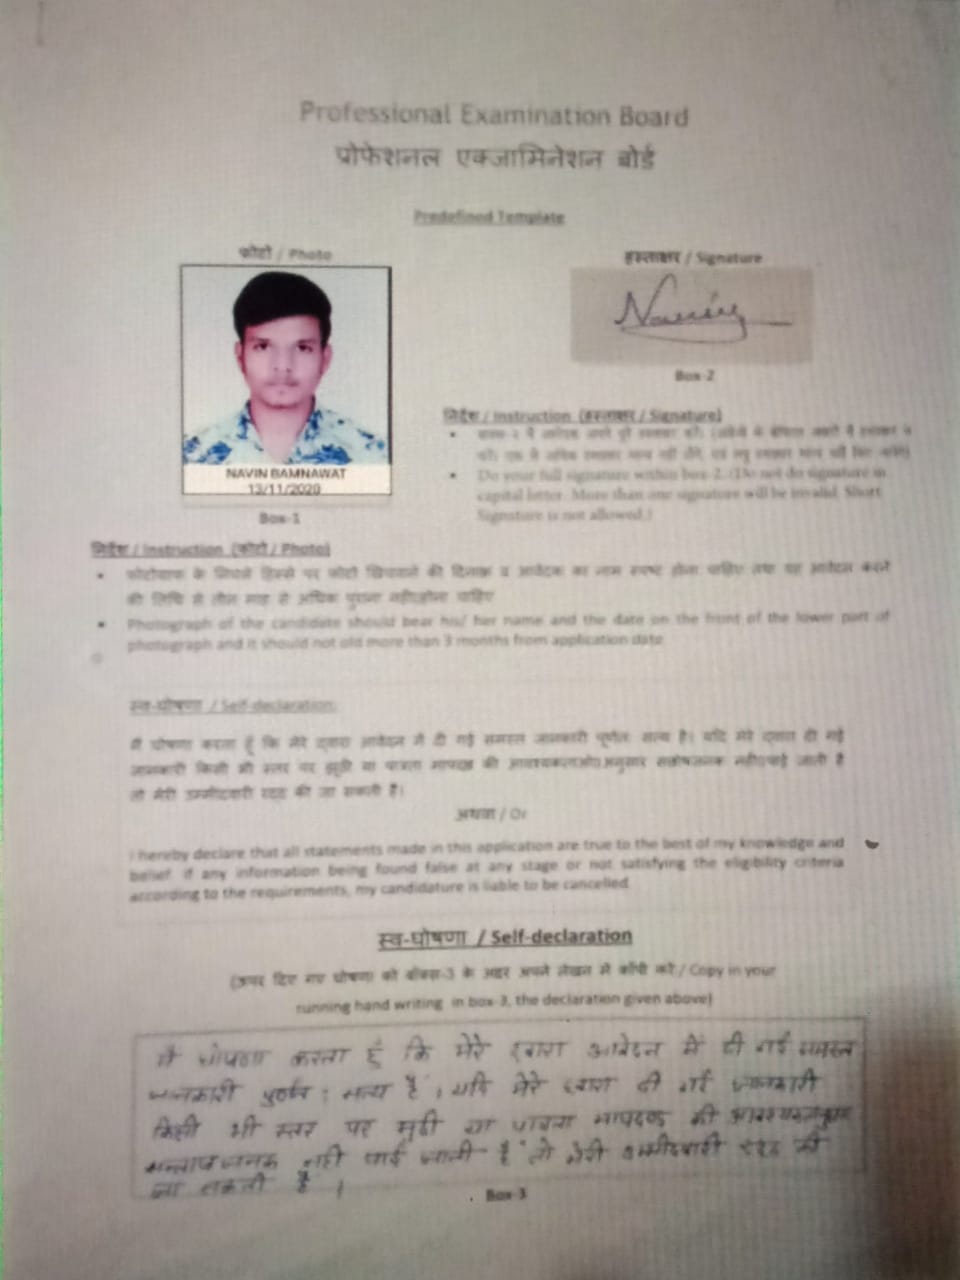 Professional Examination Board
प्रोफेशनल एक्जामिनेशन बोर्ड
Predefined Template
फोटो / Photo
NAVIN BAMNAWAT
13/11/2020
Box-1
हस्ताक्षर / Signature
Navin
Box-2
निर्देश / Instruction (हस्ताक्षर / Signature)
Do your full signature within box-2. (Do not do signature in
capital letter. More than one signature will be invalid. Short
Signature is not allowed.)
निर्देश / Instruction (फोटो / Photo)
फोटोग्राफ के निचले हिस्से पर फोटो खिचवाने की दिनांक व आवेदक का नाम स्पष्ट होना चाहिए तथा यह आवेदन करने
की तिथि से तीन माह से अधिक पुराना नहीं होना चाहिए
Photograph of the candidate should bear his/ her name and the date on the front of the lower part of
photograph and it should not old more than 3 months from application date
स्व-घोषणा / Self-declaration:
मैं घोषणा करता हूँ कि मेरे द्वारा आवेदन में दी गई समस्त जानकारी पूर्णतः सत्य है। यदि मेरे द्वारा दी गई
जानकारी किसी भी स्तर पर झूठी या पात्रता मापदण्ड की आवश्यकताओं अनुसार संतोषजनक नहीं पाई जाती है
तो मेरी उम्मीदवारी रद्द की जा सकती है।
अथवा / Or
I hereby declare that all statements made in this application are true to the best of my knowledge and
belief. If any information being found false at any stage or not satisfying the eligibility criteria
according to the requirements, my candidature is liable to be cancelled.
स्व-घोषणा / Self-declaration
(ऊपर दिए गए घोषणा को बॉक्स-3 के अंदर अपने लेखन में कॉपी करें / Copy in your
running hand writing in box-3, the declaration given above)
मैं घोषणा करता हूँ कि मेरे द्वारा आवेदन में दी गई समस्त
जानकारी पूर्णतः सत्य है। यदि मेरे द्वारा दी गई जानकारी
किसी भी स्तर पर झूठी या पात्रता मापदण्ड की
नहीं पाई जाती है तो मेरी उम्मीदवारी रद्द की
जा सकती है।
Box-3